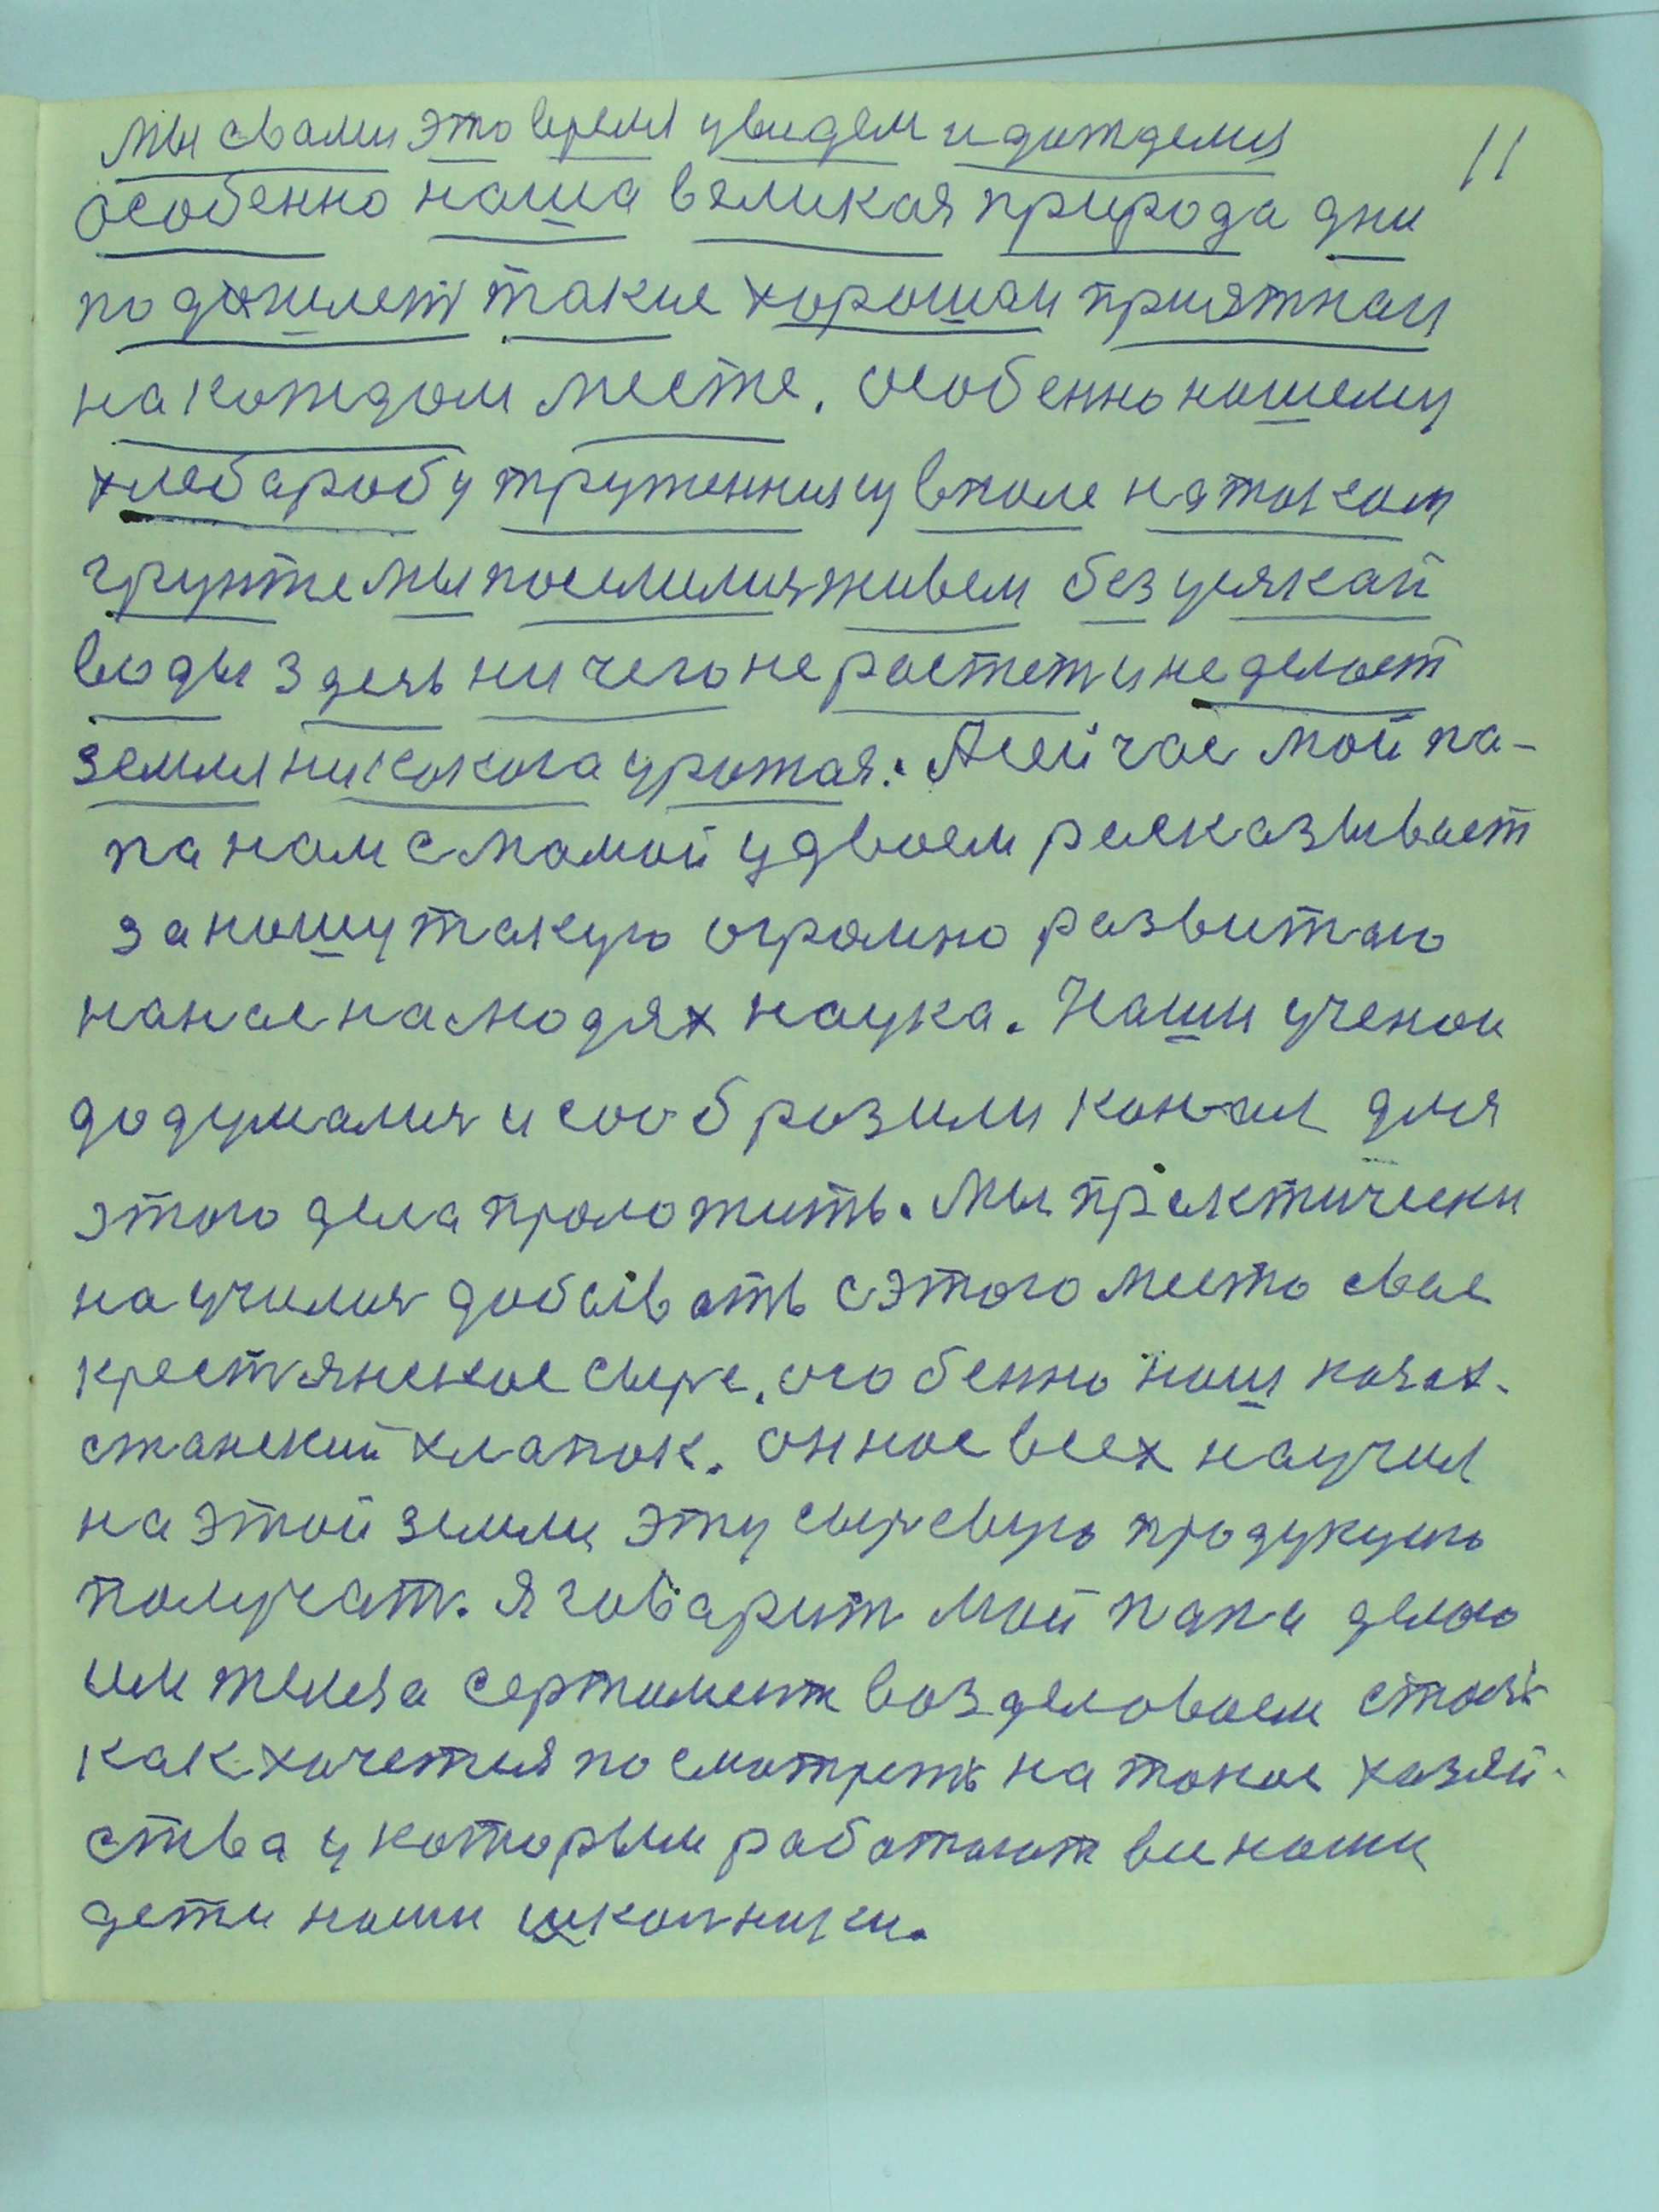 11
Мы свами это время увидем и дождемся
особенно наша великая природа дни
подошлет такие хорошаи приятнаи
на кождом месте. особенно нашему
хлебаробу труженнику вполе на таком
грунте мы поселился живем без усякай
воды здесь ни чего не растет и не делает
земля ни какога урожая. А сейчас мой па-
па нам с мамой удвоем расказывает
за нашу такую огромно развитаю
нанае на людях наука. Наши ученаи
додумался и сообразили канал для
этого дела проложить. Мы практически
научился добывать с этого место свае
крестянское сырё. особенно наш казах-
станский хлапок. он нас всех научил
на этой земли эту сырсвую продукцию
получат. Я говарит мой папа делаю
им железа сертимент возделоваем стаях
как хочется посмотреть на такое хозяй-
ства у которым работают все наши
дети наши школники.